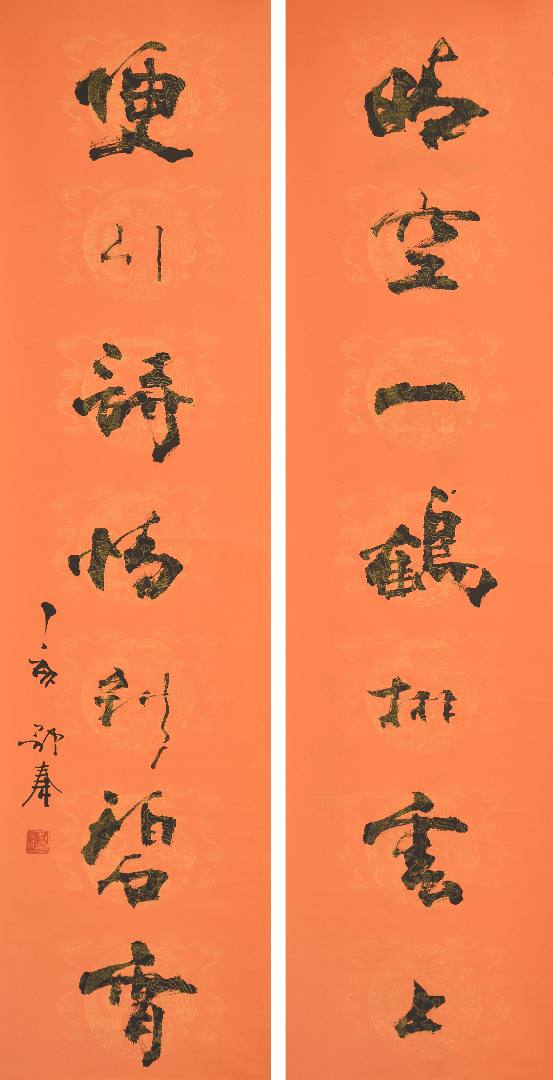 晴空一鶴排雲上
便引詩情到碧霄
丁亥 郭奉